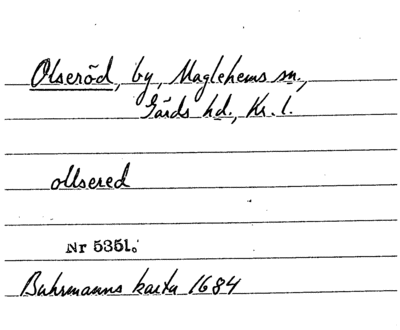 Olseröd, by, Maglehems sn.,
Gärds hd., Kr. l.
ollsered
Nr 5351.
Buhrmanns karta 1684